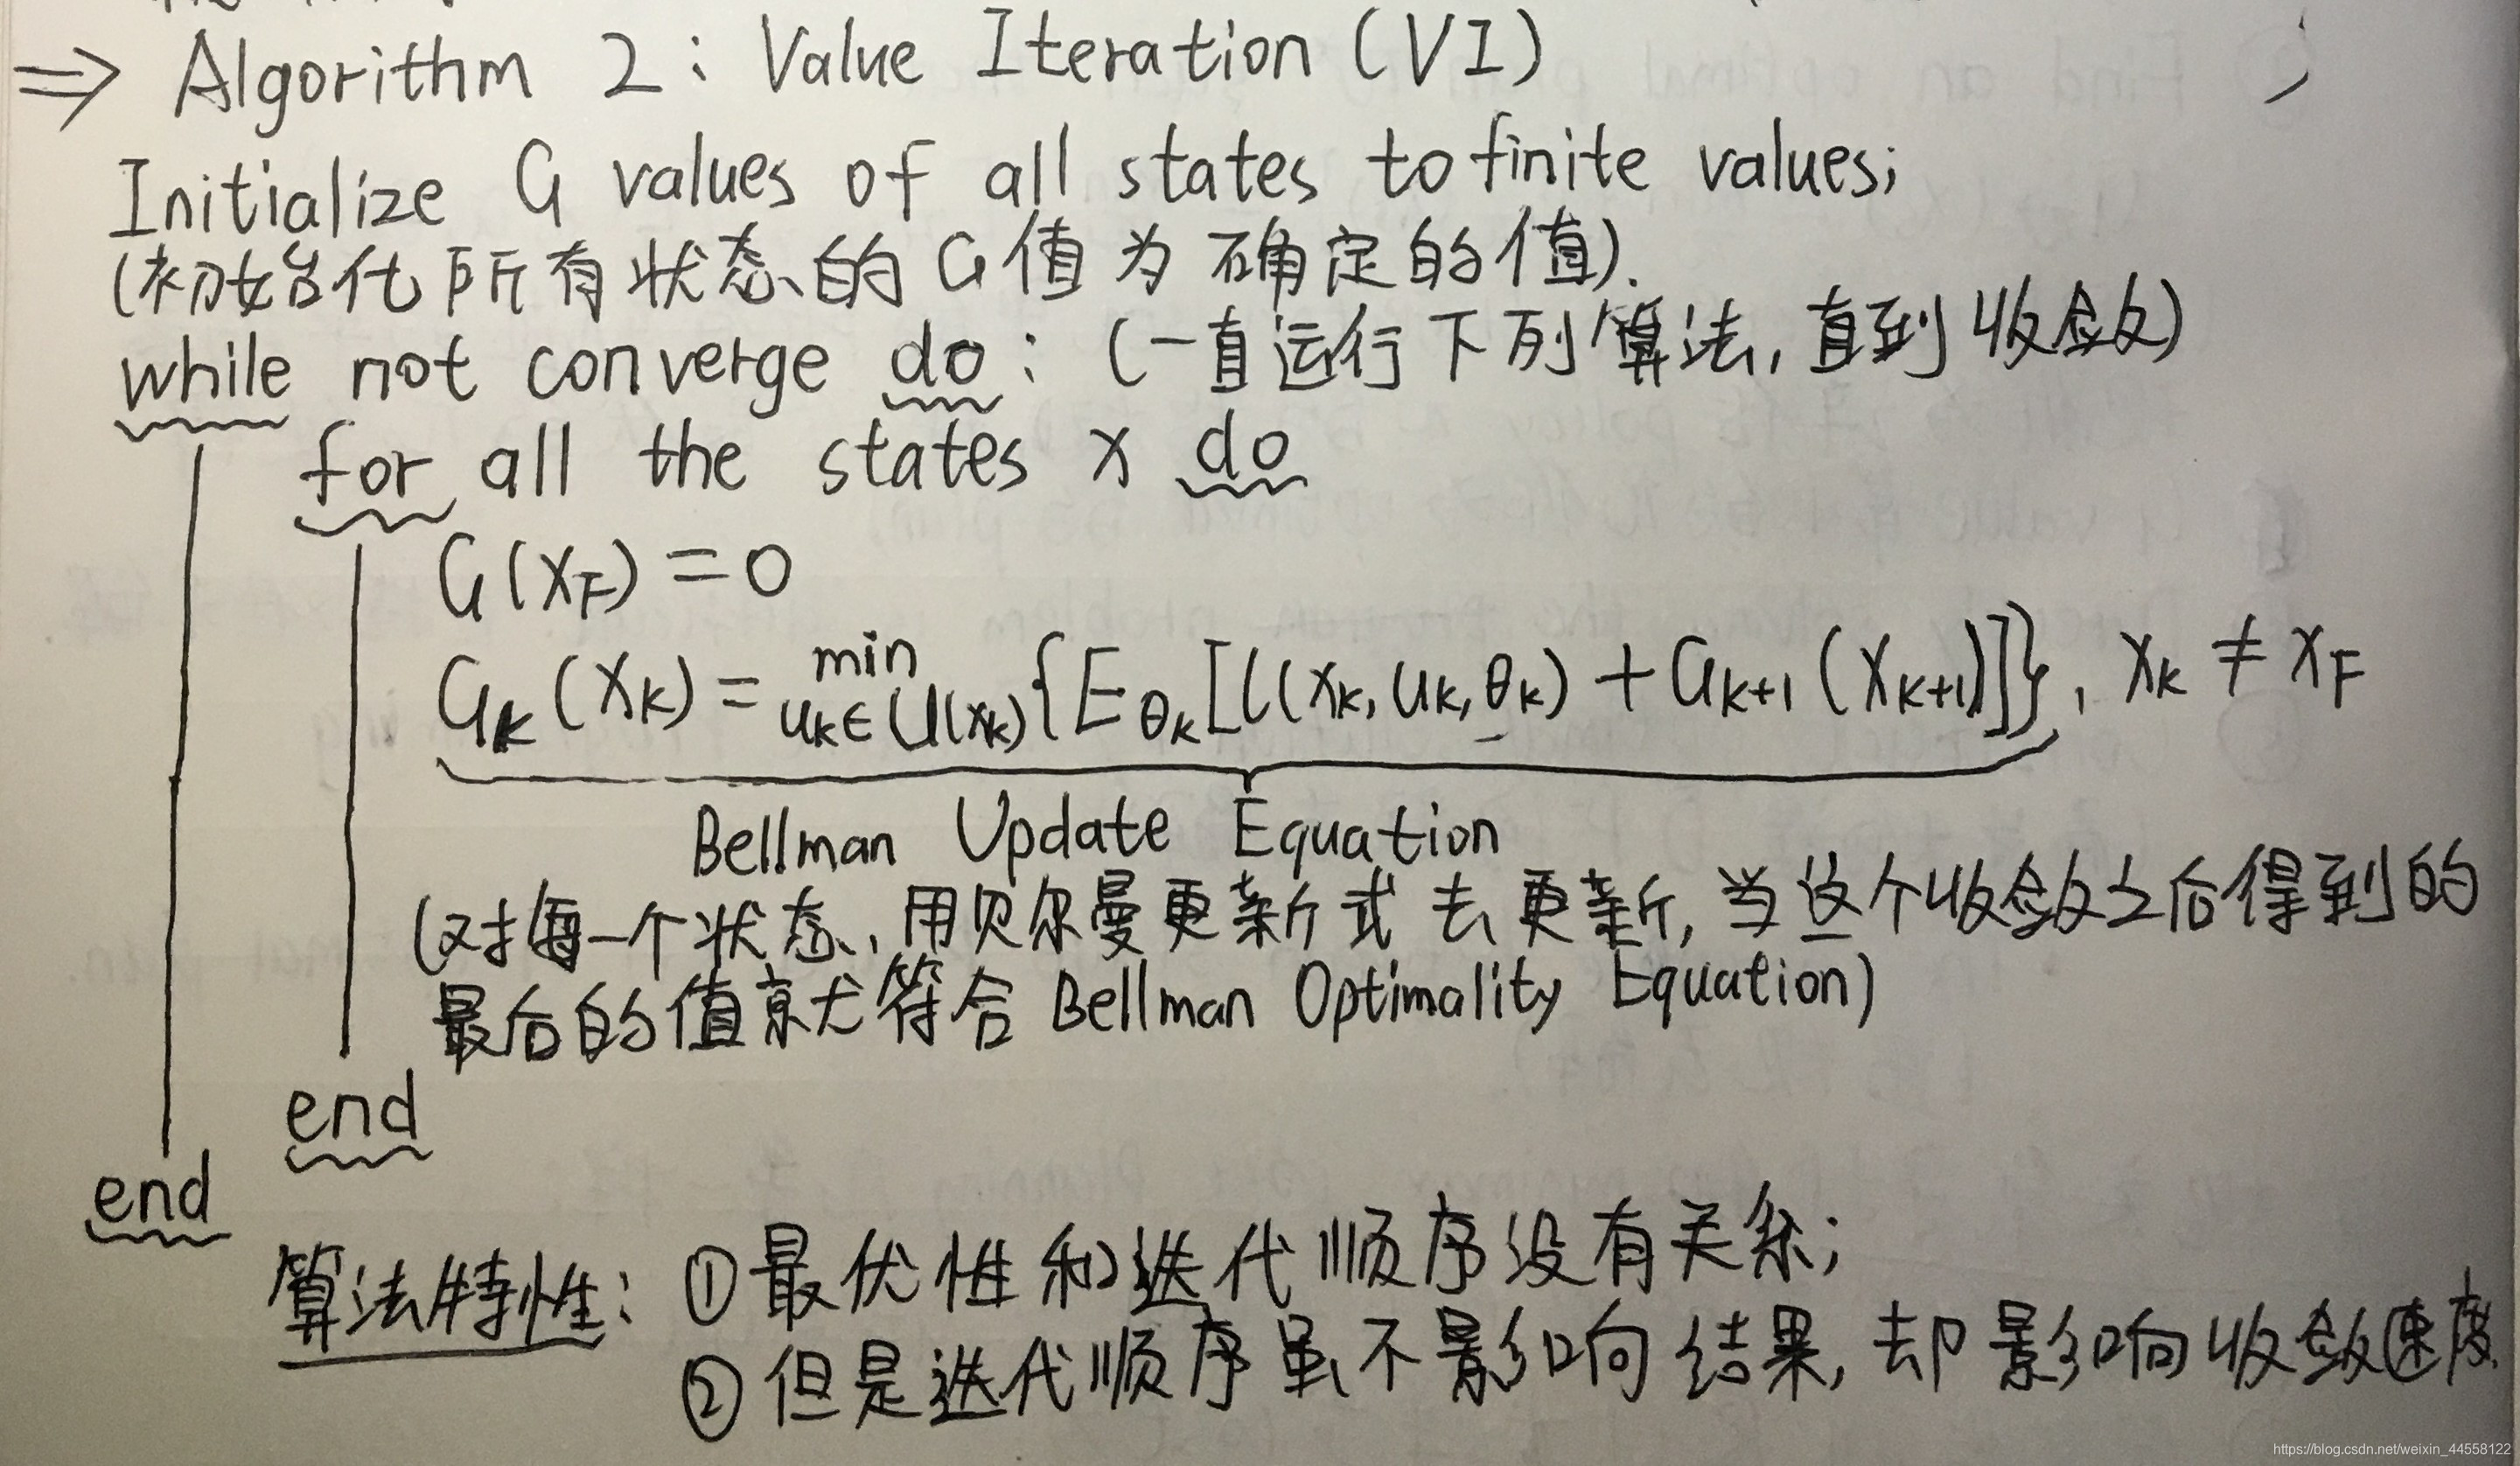 ⇒ Algorithm 2: Value Iteration (VI)
Initialize G values of all states to finite values;
(初始化所有状态的G值为确定的值).
while not converge do: (一直运行下列算法, 直到收敛)
for all the states x do
G(x_F) = 0
G_k(x_k) = min_{u_k∈U(x_k)}{E_{θ_k}[l(x_k, u_k, θ_k) + G_{k+1}(x_{k+1})]}, x_k ≠ x_F
Bellman Update Equation
(对每一个状态, 用贝尔曼更新式去更新, 当这个收敛之后得到的
最后的值就符合 Bellman Optimality Equation)
end
end
算法特性: ①最优性和迭代顺序没有关系;
②但是迭代顺序虽不影响结果, 却影响收敛速度.
https://blog.csdn.net/weixin_44558122